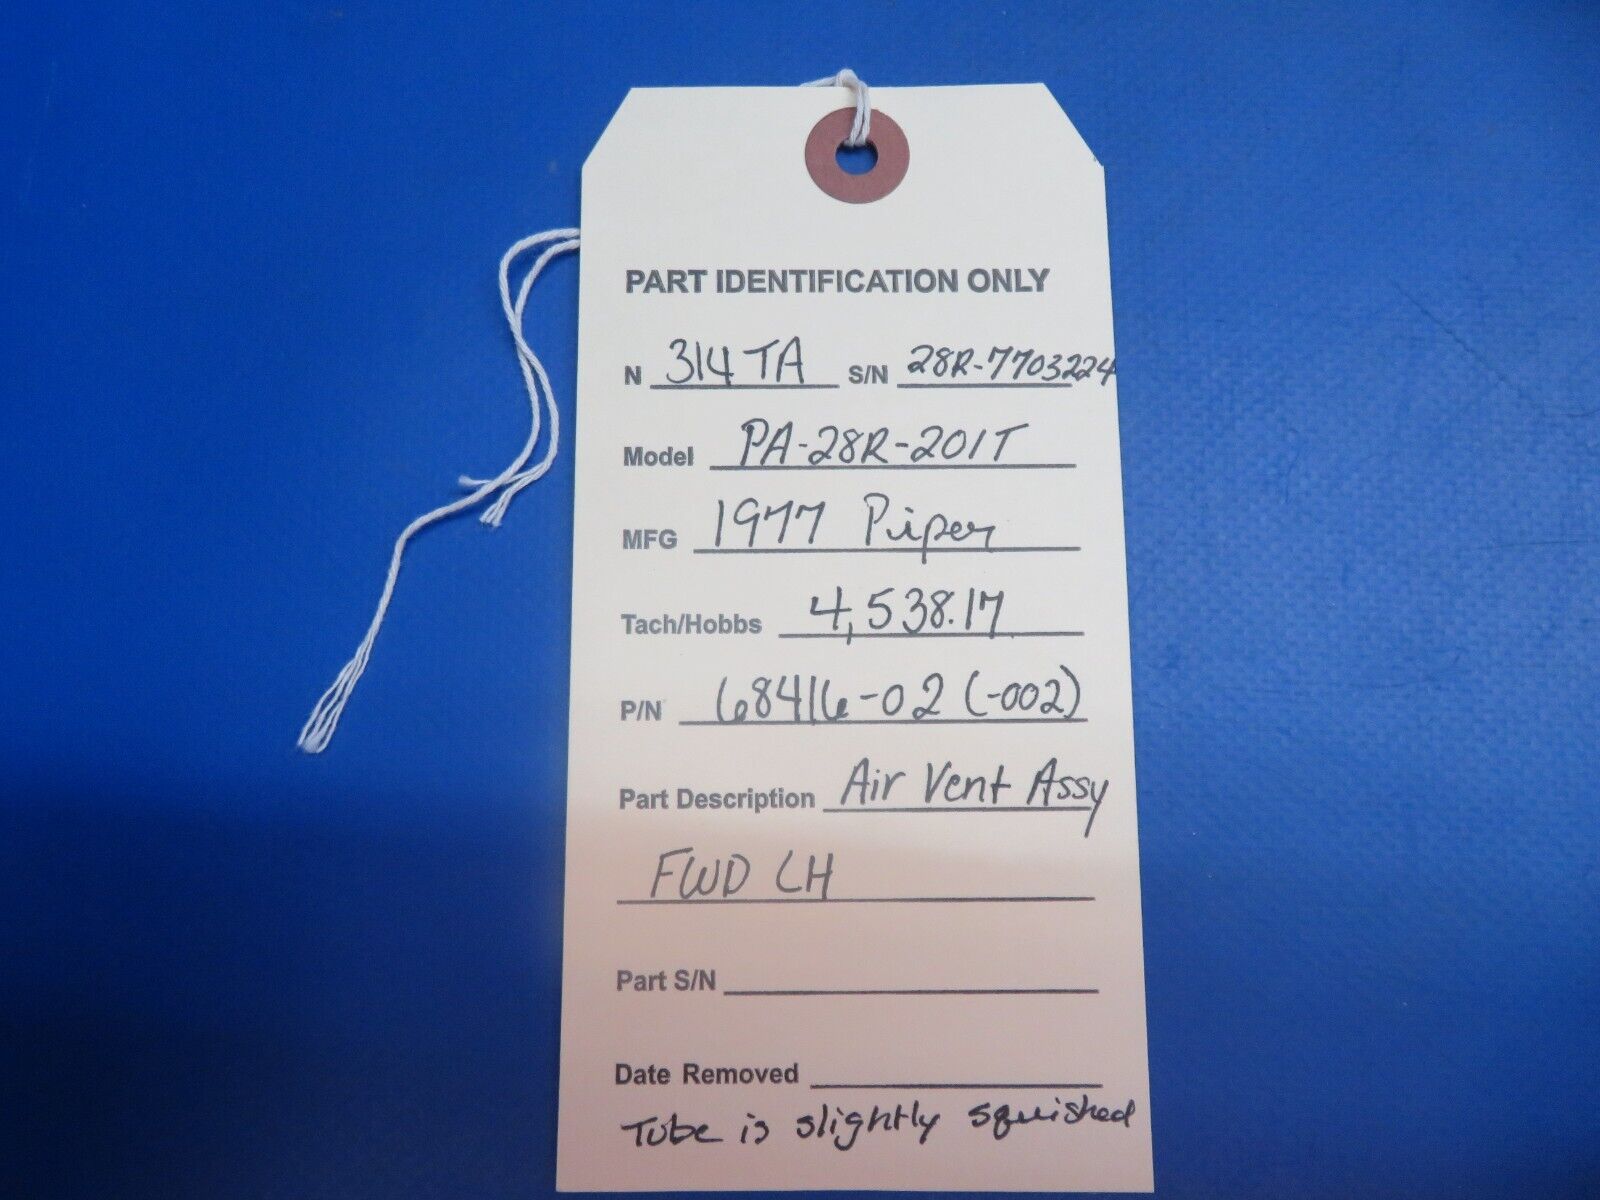 PART IDENTIFICATION ONLY
N 314TA S/N 28R-7703224
Model PA-28R-201T
MFG 1977 Piper
Tach/Hobbs 4,538.17
P/N 68416-02 (-002)
Part Description Air Vent Assy
FWD LH
Part S/N
Date Removed
Tube is slightly squished